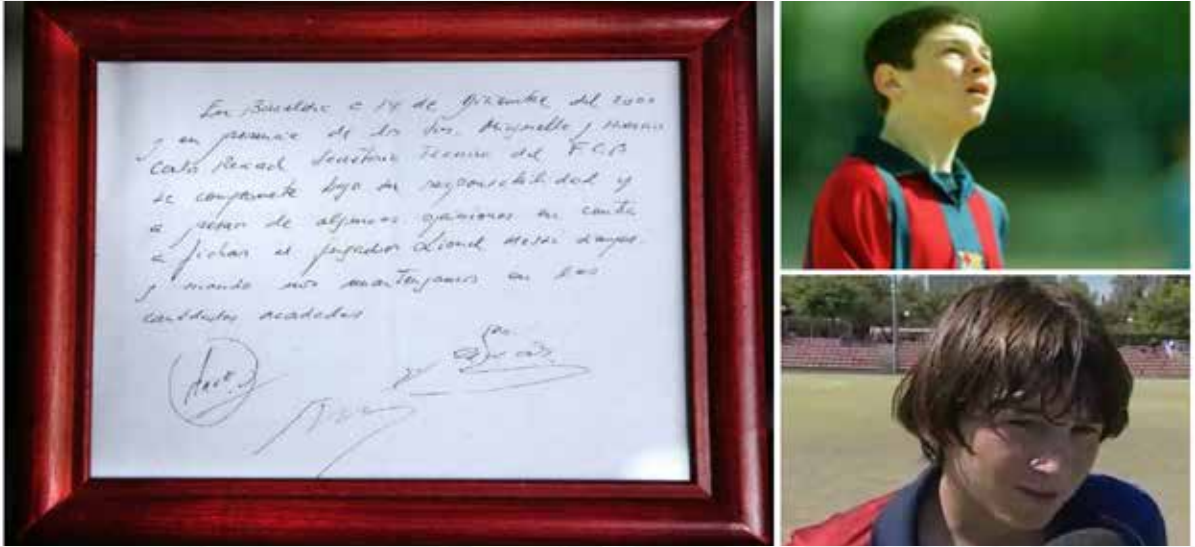 En Barcelona a 14 de Diciembre del 2000
y en presencia de los Srs. Minguella y Horacio
Carles Rexach Secretario Tecnico del F.C.B
se compromete bajo su responsabilidad y
a pesar de algunas opiniones en contra
a fichar al jugador Lionel Messi siempre
y cuando nos mantengamos en las
cantidades acordadas